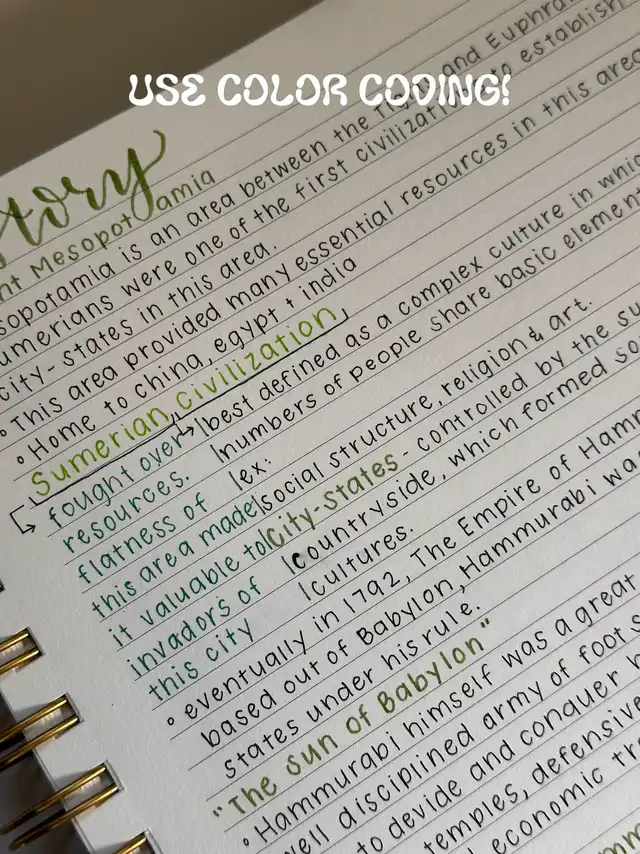 USE COLOR CODING!
tory
nt Mesopotamia
sopotamia is an area between the Tigris and Euphra
umerians were one of the first civilizations to establish
city-states in this area.
• This area provided many essential resources in this area
• Home to china, egypt + india
Sumerian civilization
best defined as a complex culture in whic
numbers of people share basic elemen
ex:
social structure, religion & art.
fought over
resources.
flatness of
this area made
it valuable to
invadors of
this city
City-States - controlled by the su
countryside, which formed so
cultures.
• eventually in 1792, The Empire of Hamm
based out of Babylon, Hammurabi wa
states under his rule.
"The Sun of Babylon"
• Hammurabi himself was a great
well disciplined army of foot s
to devide and conquer
temples, defensive
economic tr